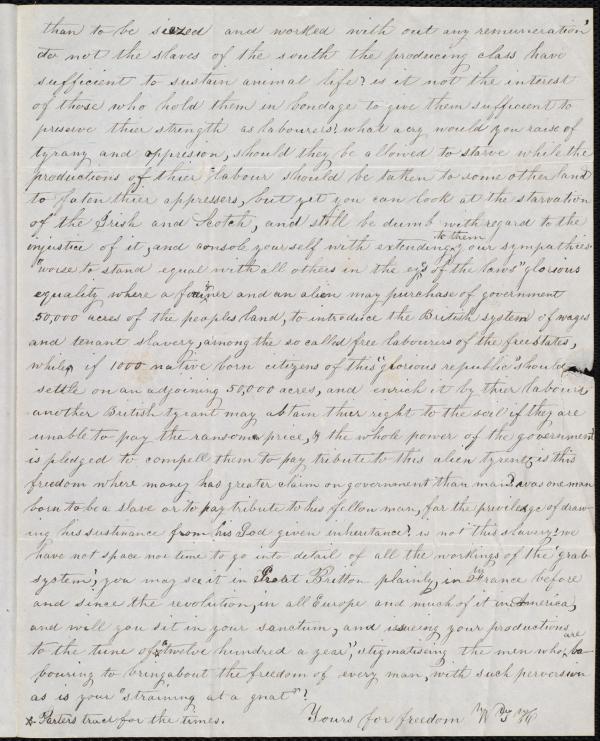 than to be siezed and worked with out any remuneration
do not the slaves of the south the producing class have
sufficient to sustain animal life? is it not the interest
of those who hold them in bondage to give them sufficient to
preserve thier strength as labourers? what a cry would you raise of
tyrany and oppresion, should they be allowed to starve while the
productions of thier labour should be taken to some other land
to faten thier appressers, but yet you can look at the starvation
of the Irish and Scotch, and still be dumb with regard to the
to them
injustice of it, and console yourself with extending your sympathies
"worse to stand equal with all others in the eye of the laws" glorious
equality where a foriner and an alien may purchase of government
50,000 acres of the peoples land, to introduce the British system of wages
and tenant slavery, among the so called free labourers of the free states,
while, if 1000 native born citizens of this "glorious republic" should
settle on an adjoining 50,000 acres, and enrich it by thier labours,
another British tyrant may abtain thier right to the soil if they are
unable to pay the ransom price, & the whole power of the government
is pledged to compell them to pay tribute to this alien tyrent, is this
freedom where money has greater claim on government than man? was one man
born to be a slave or to pay tribute to his fellow man, for the priviledge of draw-
ing his sustinance from his God given inheritance? is not this slavery? we
have not space nor time to go into detail of all the workings of the 'grab
system', you may see it in Great Britton plainly, in France before
and since the revolution, in all Europe and much of it in America,
and will you sit in your sanctum, and issueing your productions
are
to the tune of "twelve hundred a year", stigmatising the men who la-
bouring to bring about the freedom of every man, with such perversion
as is your "straining at a gnat"?
* Parters tract for the times. Yours for freedom W